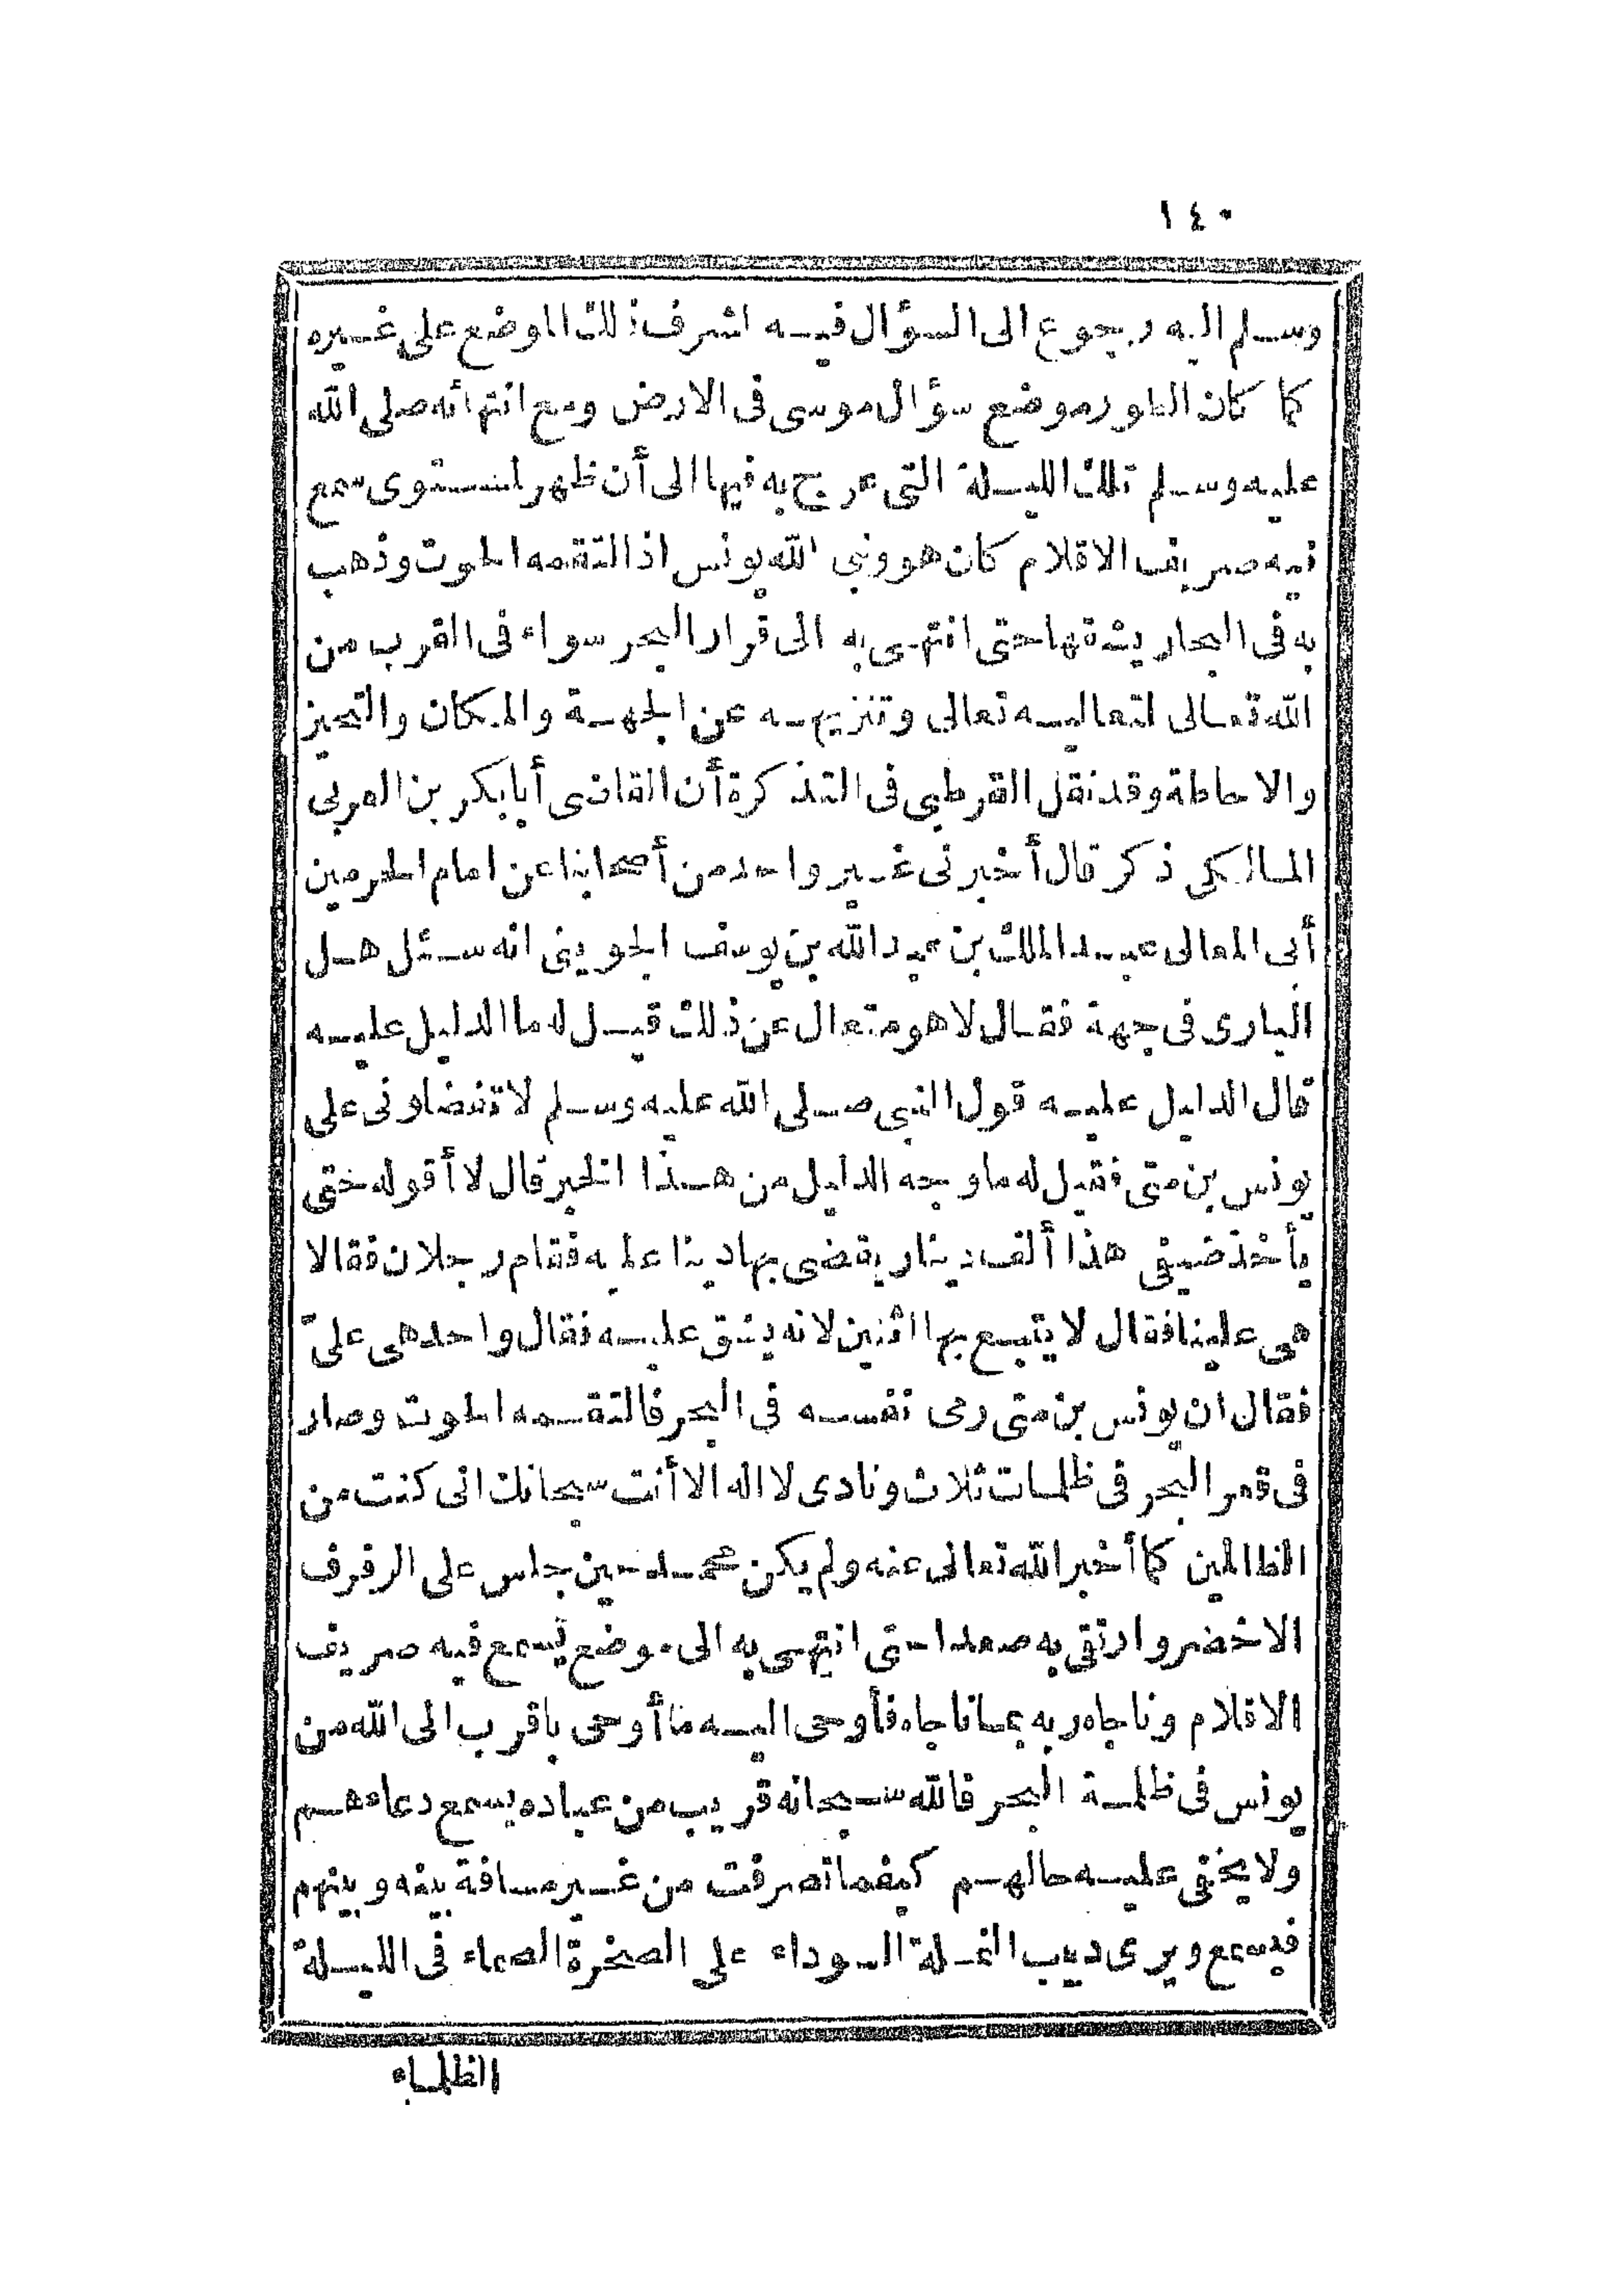 ١٤٠
وسلم اليه رجوع الى السؤال فيه لشرف ذلك الموضع على غيره
كما كان الطور موضع سؤال موسى فى الارض ومع انتهائه صلى الله
عليه وسلم تلك الليلة التى عرج به فيها الى أن ظهر لمستوى سمع
فيه صريف الاقلام كان هو ونبى الله يونس اذ التقمه الحوت وذهب
به فى البحار يشقها حتى انتهى به الى قرار البحر سواء فى القرب من
الله تعالى لتعاليه تعالى وتنزيهه عن الجهة والمكان والتحيز
والاحاطة وقد نقل القرطبى فى التذكرة أن القاضى أبا بكر بن العربى
المالكى ذكر قال أخبرنى غير واحد من أصحابنا عن امام الحرمين
أبى المعالى عبد الملك بن عبد الله بن يوسف الجوينى انه سئل هل
البارى فى جهة فقال لا هو متعال عن ذلك قيل له ما الدليل عليه
قال الدليل عليه قول النبى صلى الله عليه وسلم لا تفضلونى على
يونس بن متى فقيل له ما وجه الدليل من هذا الخبر قال لا أقوله حتى
يأخذ ضيفى هذا ألف دينار يقضى بها دينا عليه فقام رجلان فقالا
هى علينا فقال لا يتبع بها اثنين لانه يشق عليه فقال واحد هى علىّ
فقال ان يونس بن متى رمى نفسه فى البحر فالتقمه الحوت وصار
فى قعر البحر فى ظلمات ثلاث ونادى لا اله الا أنت سبحانك انى كنت من
الظالمين كما أخبر الله تعالى عنه ولم يكن محمد حين جلس على الرفرف
الاخضر وارتقى به صعدا حتى انتهى به الى موضع يسمع فيه صريف
الاقلام وناجاه ربه بما ناجاه فأوحى اليه ما أوحى باقرب الى الله من
يونس فى ظلمة البحر فالله سبحانه قريب من عباده يسمع دعاءهم
ولا يخفى عليه حالهم كيفما تصرفت من غير مسافة بينه وبينهم
فيسمع ويرى دبيب النملة السوداء على الصخرة الصماء فى الليلة
الظلماء